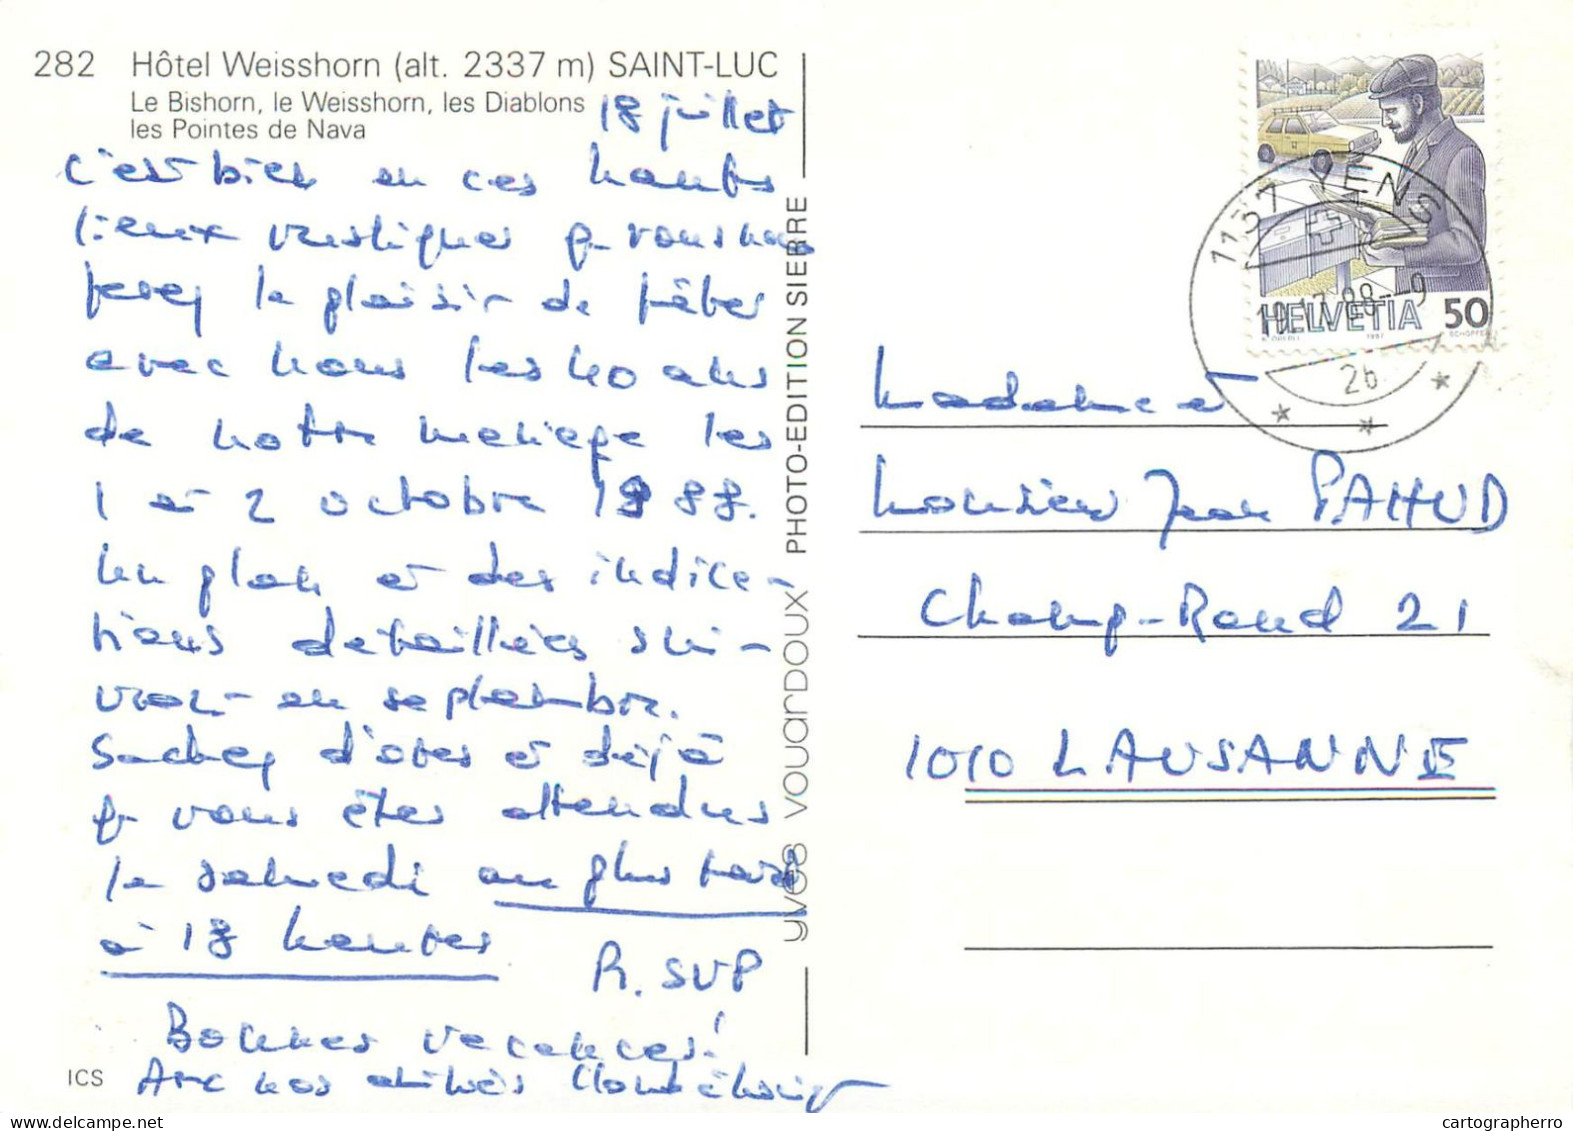 282 Hôtel Weisshorn (alt. 2337 m) SAINT-LUC
Le Bishorn, le Weisshorn, les Diablons
les Pointes de Nava
18 juillet
C'est bien en ces hauts
lieux rustiques q. vous nous
ferez le plaisir de fêter
avec nous les 40 ans
de notre mariage les
1 et 2 octobre 1988.
Un plan et des indica-
tions détaillées sui-
vront en septembre.
Sachez d'ores et déjà
q. vous êtes attendus
le samedi au plus tard
à 18 heures
R. SVP
Bonnes vacances!
Avec nos amitiés
ICS
yves vouardoux PHOTO-EDITION SIERRE
1137 YENS
88--9
2b
HELVETIA 50
Madame et
Monsieur Jean PAHUD
Champ-Rond 21
1010 LAUSANNE
cartographerro